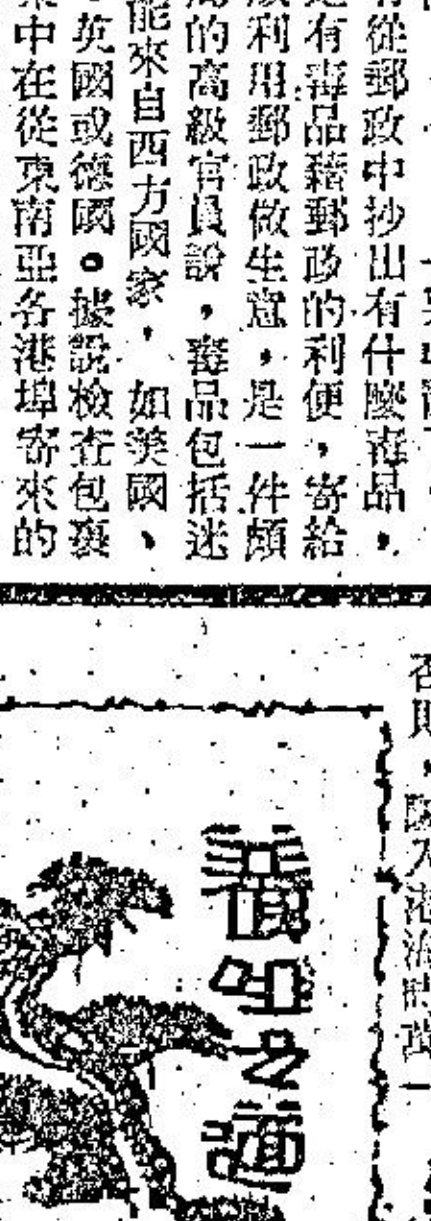 從郵政中抄出有什麼毒品，
有毒品藉郵政的利便，寄給
利用郵政做生意，是一件頗
的高級官員說，毒品包括迷
能來自西方國家，如美國、
英國或德國。據說檢查包裹
中在從東南亞各港埠寄來的
否則，
養生之道